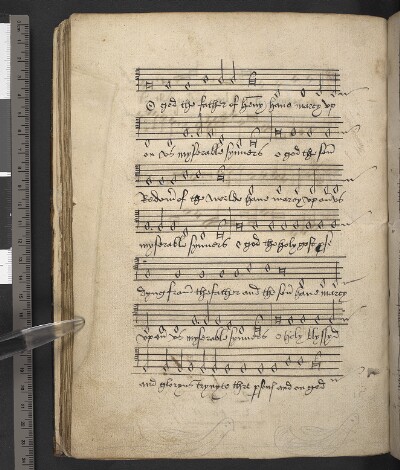 O god the father of heuny haue marcy vp
on vs myserable synners o god the son
Redemr of the worlde haue marcy vpon vs
myserable synners o god the holy gost pse
dyng fram the father and the son haue marcy
vpon vs myserable synners o holy blyssyd
and gloryus trynyte thre psons and on god